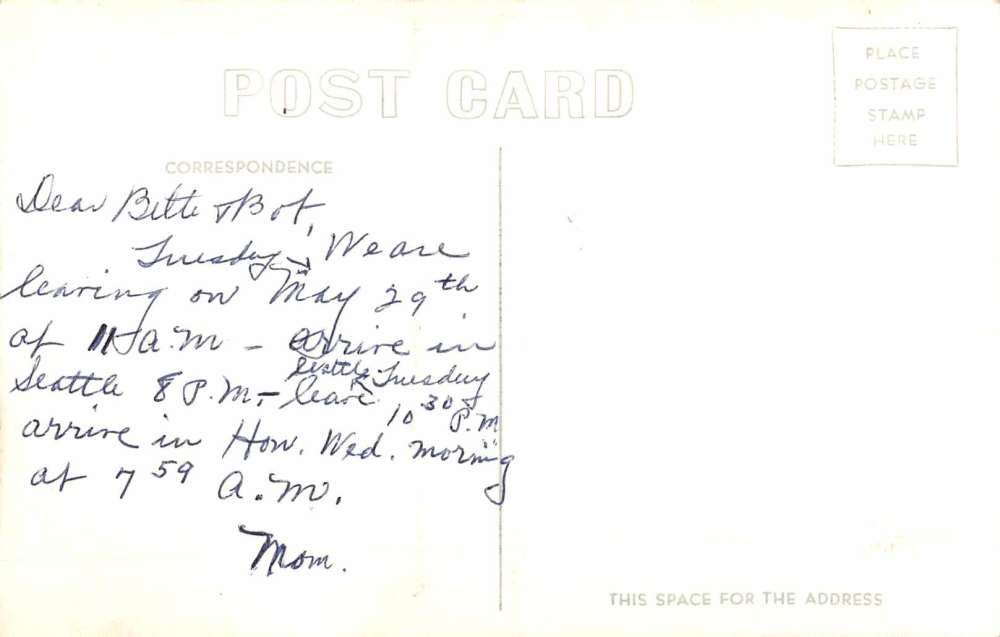 POST CARD
PLACE
POSTAGE
STAMP
HERE
CORRESPONDENCE
Dear Bette & Bob,
Tuesday, We are
leaving on May 29th
at 11 A.M - arrive in
Seattle 8 P.M, - leave Seattle Tuesday
10 30 P.M
arrive in Hon. Wed. morning
at 7 59 A.M.
Mom.
THIS SPACE FOR THE ADDRESS